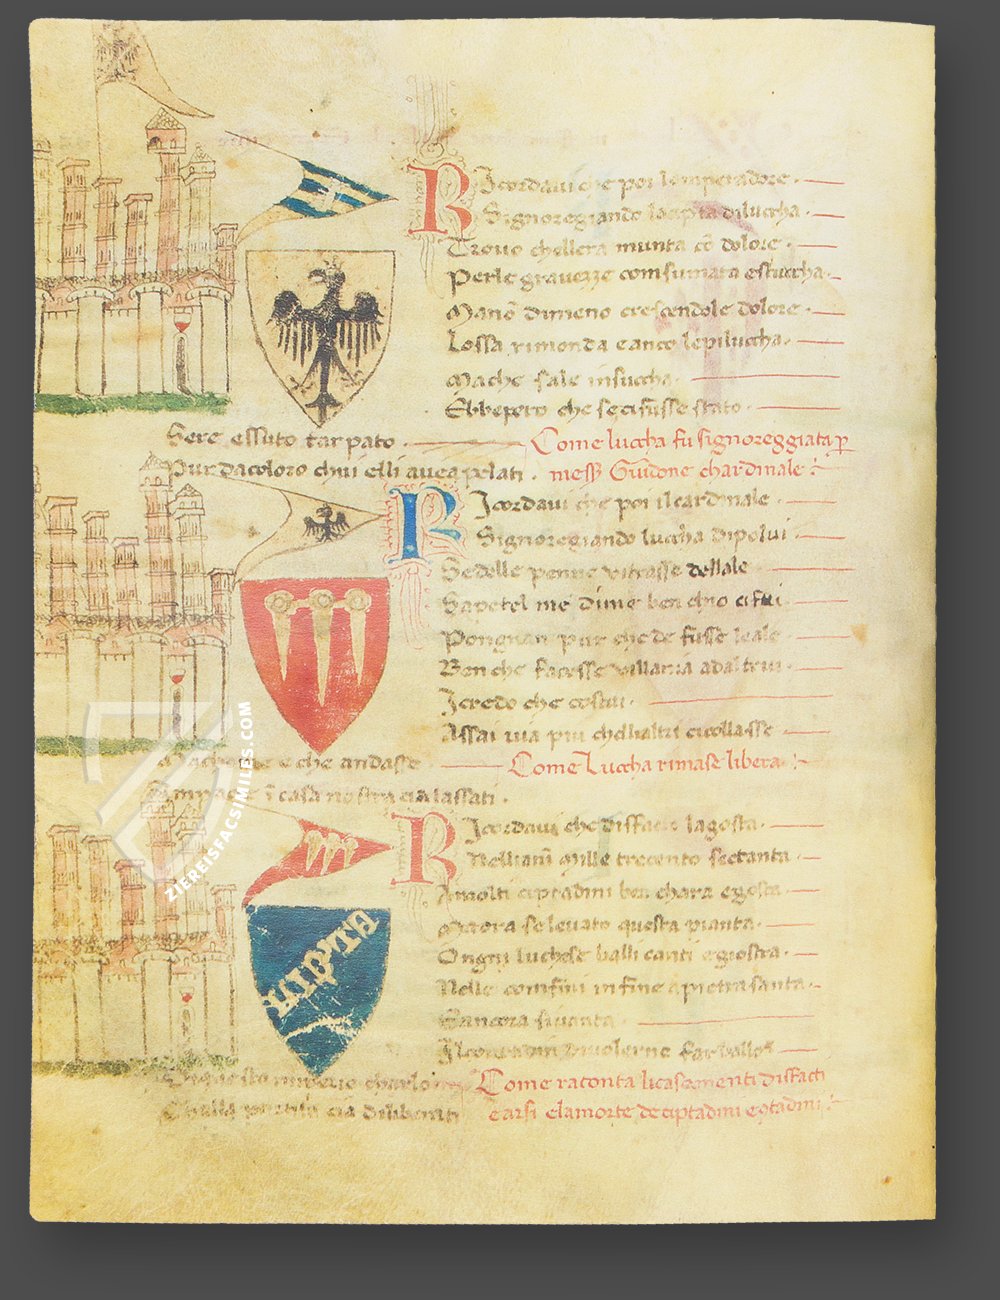 Ricordavi che poi lomperadore
Signoregiando la cipta di luccha
Trovo chellera munta cō dolore
Perle graveze comsumata estuccha
Manō dimeno crescendole dolore
Lossa rimonda e anco le piluccha
Mache sale insuccha
Ebbepero che secifusse stato
Sere essuto tarpato
Pur da coloro chui elli avea pelati
Come luccha fu signoreggiata p
mess Guidone chardinale
Ricordavi che poi il cardinale
Signoregiando luccha dipo lui
Sedelle penne vitrasse dellale
Sapetel me dime ben chio cifui
Pongnan pur che de fusse leale
Ben che facesse villania adaltrui
Icredo che costui
Assai via piu chellaltri cicollasse
e che andasse
Come Luccha rimase libera
ī casa nostra cia lassati
Ricordavi che disfacta lagosta
Nelliani mille trecento sectanta
Amolti ciptadini ben chara egosta
Maora se levato questa pianta
Ongni luchese balli canti egiostra
Nelle comfini infine a pietrasanta
Sancora sivanta
far ballo
Di questo charlo
Come raconta li casamenti disfacti
earsi elamorte de ciptadini eqtadini
ZIEREISFACSIMILES.COM